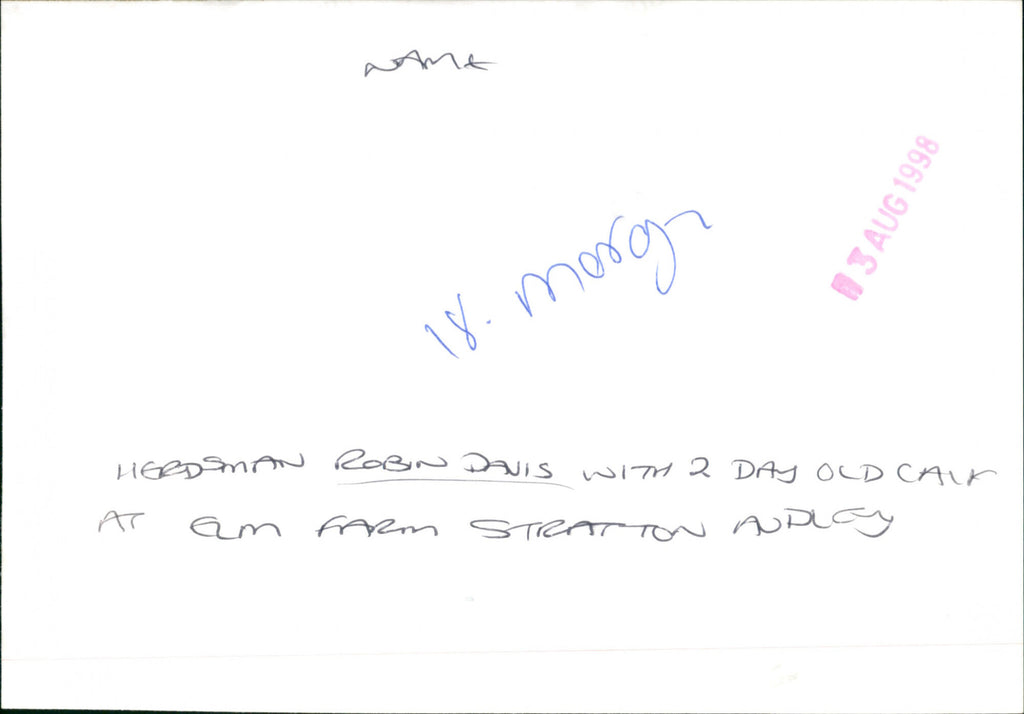 NAME
13 AUG 1998
18. morgn
HERDSMAN ROBIN DAVIS WITH 2 DAY OLD CALF
AT ELM FARM STRATTON AUDLEY